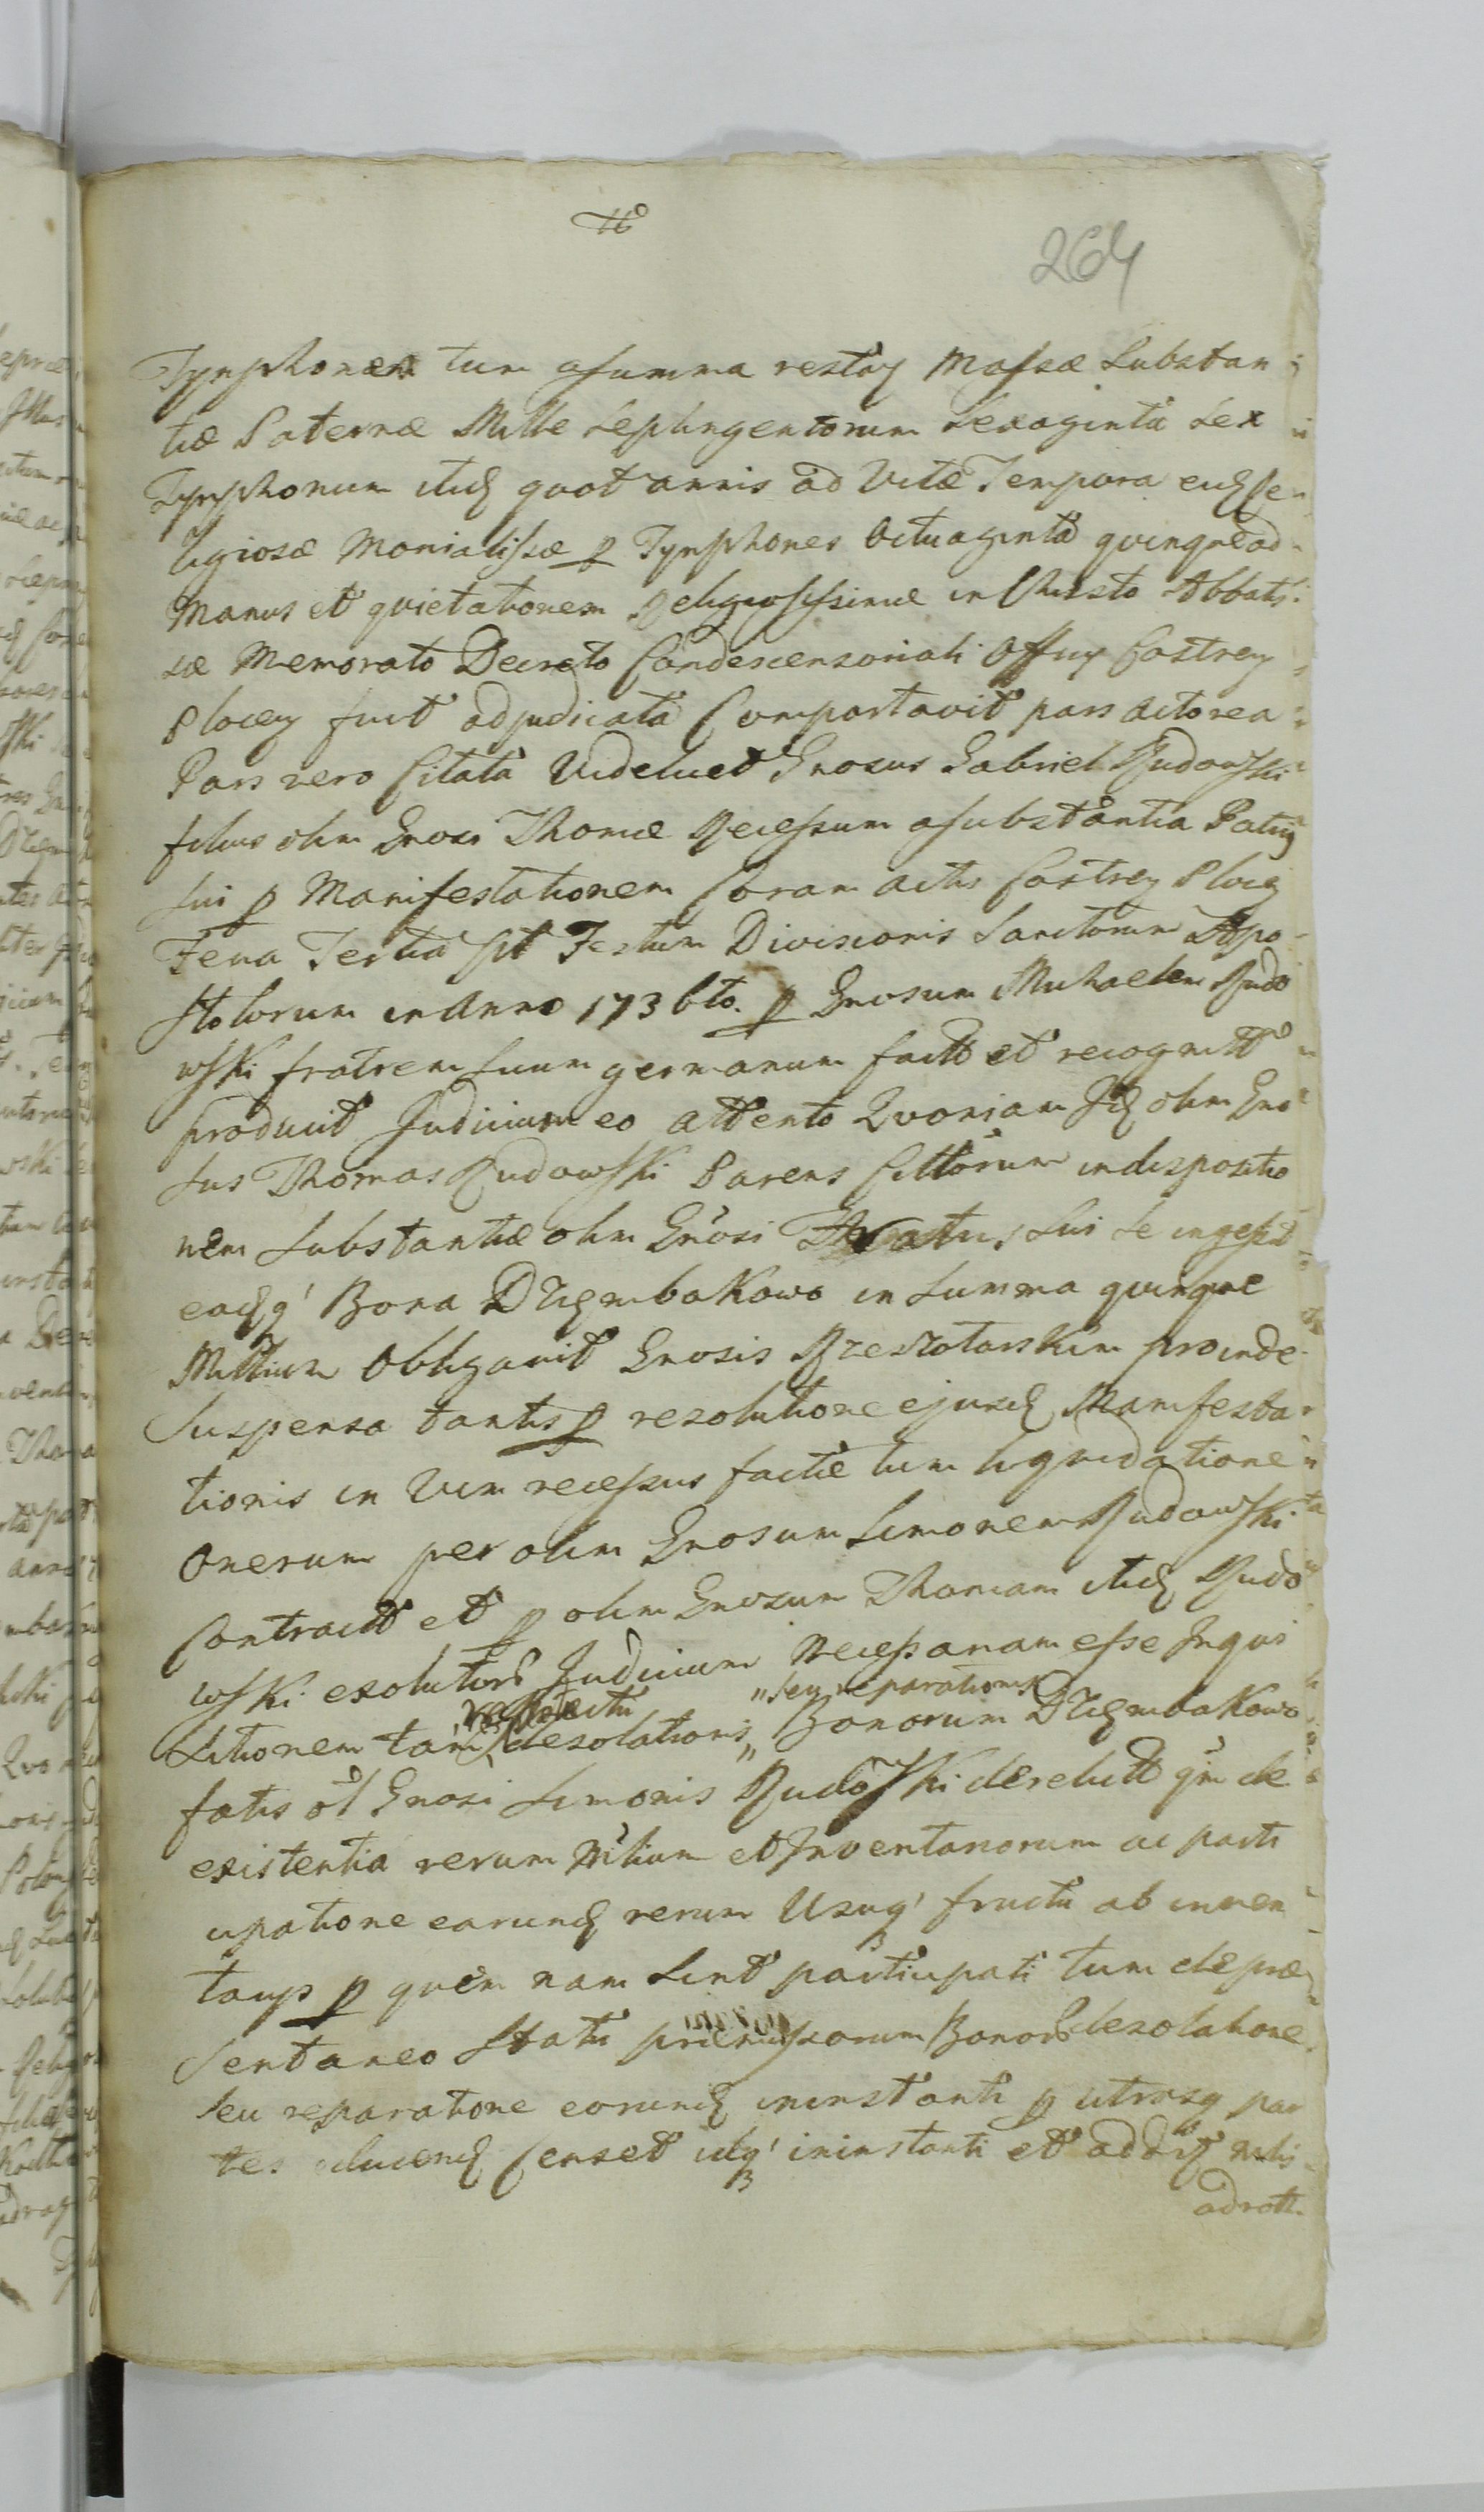 264
Tymphonem tum a summa restan Massæ Substan
tiæ Paternæ Mille Septingentorum Sexaginta Sex
Tymphonum itid quot annis ad Vitæ Tempora eid Re
ligiosæ Monialissæ p Tymphones Octuaginta quinque ad
Manus et quietationem Religiosissimæ in Christo Abbatis
sæ Memorato Decreto Condescensoriali Officy Castren
Plocen fuit adjudicata Comportavit pars actorea
Pars vero Citata Videlicet Gnosus Gabriel Rudowski
filius olim Gnosi Thomæ Recessum a substantia Patrij
sui p Manifestationem Coram actis Castren Plocen
Feria Tertia pt Festum Divisionis Sanctorum Apo
stolorum in Anno 1736to. p Gnosum Michaelem Rudo
wski fratrem suum germanum factt et recognitt
produxit Judicium eo attento Qvoniam Id olim Gno
sus Thomas Rudowski Parens Cittorum in dispositio
nem Substantiæ olim Gnosi sui se ingessit
eadq' Bona Dziembakowo in Summa quinque
Millium Obligavit Gnosis proinde
Suspensa tantisp resolutione ejusd Manifesta
tionis in Vim recessus factæ tum liquidatione
Onerum per olim Gnosum Simonem Rudowski
Contractt et p olim Gnosum Thomam itid Rudo
wski exolutor Judicium Necessariam esse Inqui
respectu "seu reparationis
sitionem tam desolationis" Bonorum Dziembakowo
fatis ol Gnosi Simonis Rudowski derelictt qm de
existentia rerum Mlium et Inventariorum ac parti
cipatione earund rerum Usuq' fructu ab inven
tarijs p quem nam sint participati tum de præ
sentaneo Statu præmissorum Bonor desolatione
seu reparatione eorund in instanti p utrasq par
tes educend Censet idq' in instanti et
adrott.